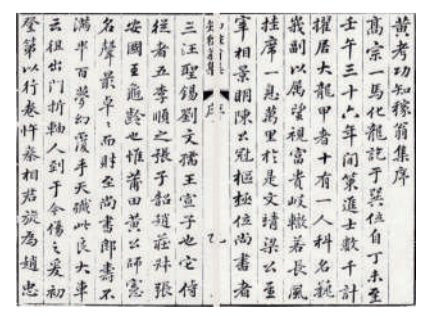 黄考功知稼翁集序
髙宗一馬化龍訖于巽位自丁未至
壬午三十六年間策進士數千計
擢居大龍甲者十有一人科名巍
峩副以属望視富貴岐轍若長風
挂席一息萬里於是文靖梁公至
宰相景明陳公冠樞極位尚書者
三汪聖錫劉文孺王宣子也它侍
從者五李順之張子韶趙荘叔張
安國王龜齡也惟莆田黄公師憲
名聲最卓〻而財至尚書郎壽不
滿半百夢幻覆手天殱此良大車
云徂出門折軸人到于今傷之爰初
登第以行卷忤秦相君旋為趙忠